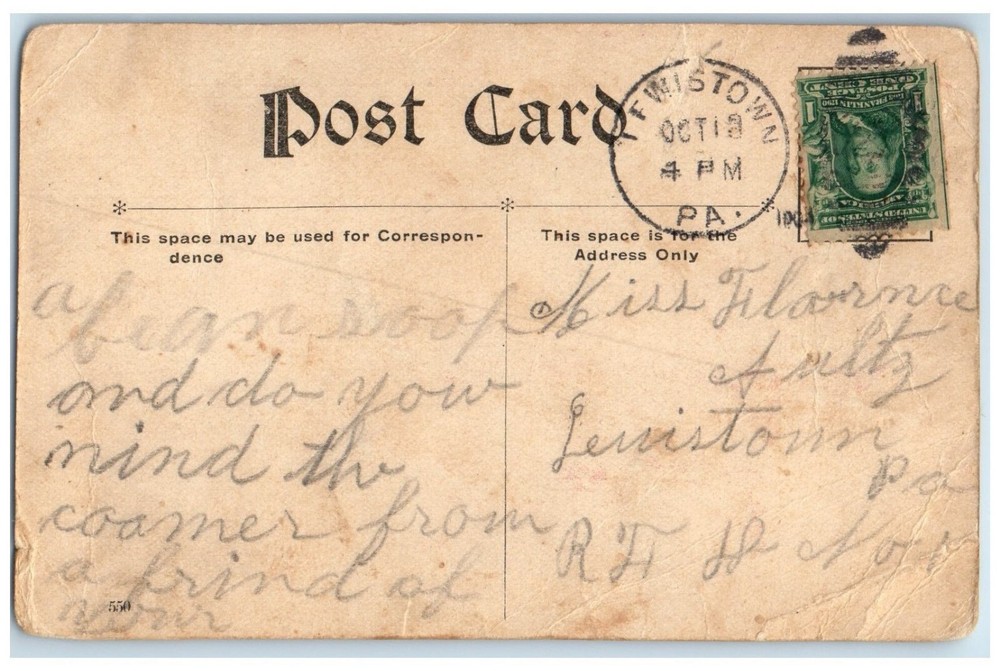 Post Card
LEWISTOWN
OCT 18
4 PM
PA.
SERIES 1902
POSTAGE
ONE CENT
1
UNITED STATES OF
This space may be used for Correspon-
dence
This space is for the
Address Only
a
bean soop
and do you
mind the
coamer from
a frind of
your
550
Miss Flornce
Aultz
Lewistown
Pa
R F D No 1